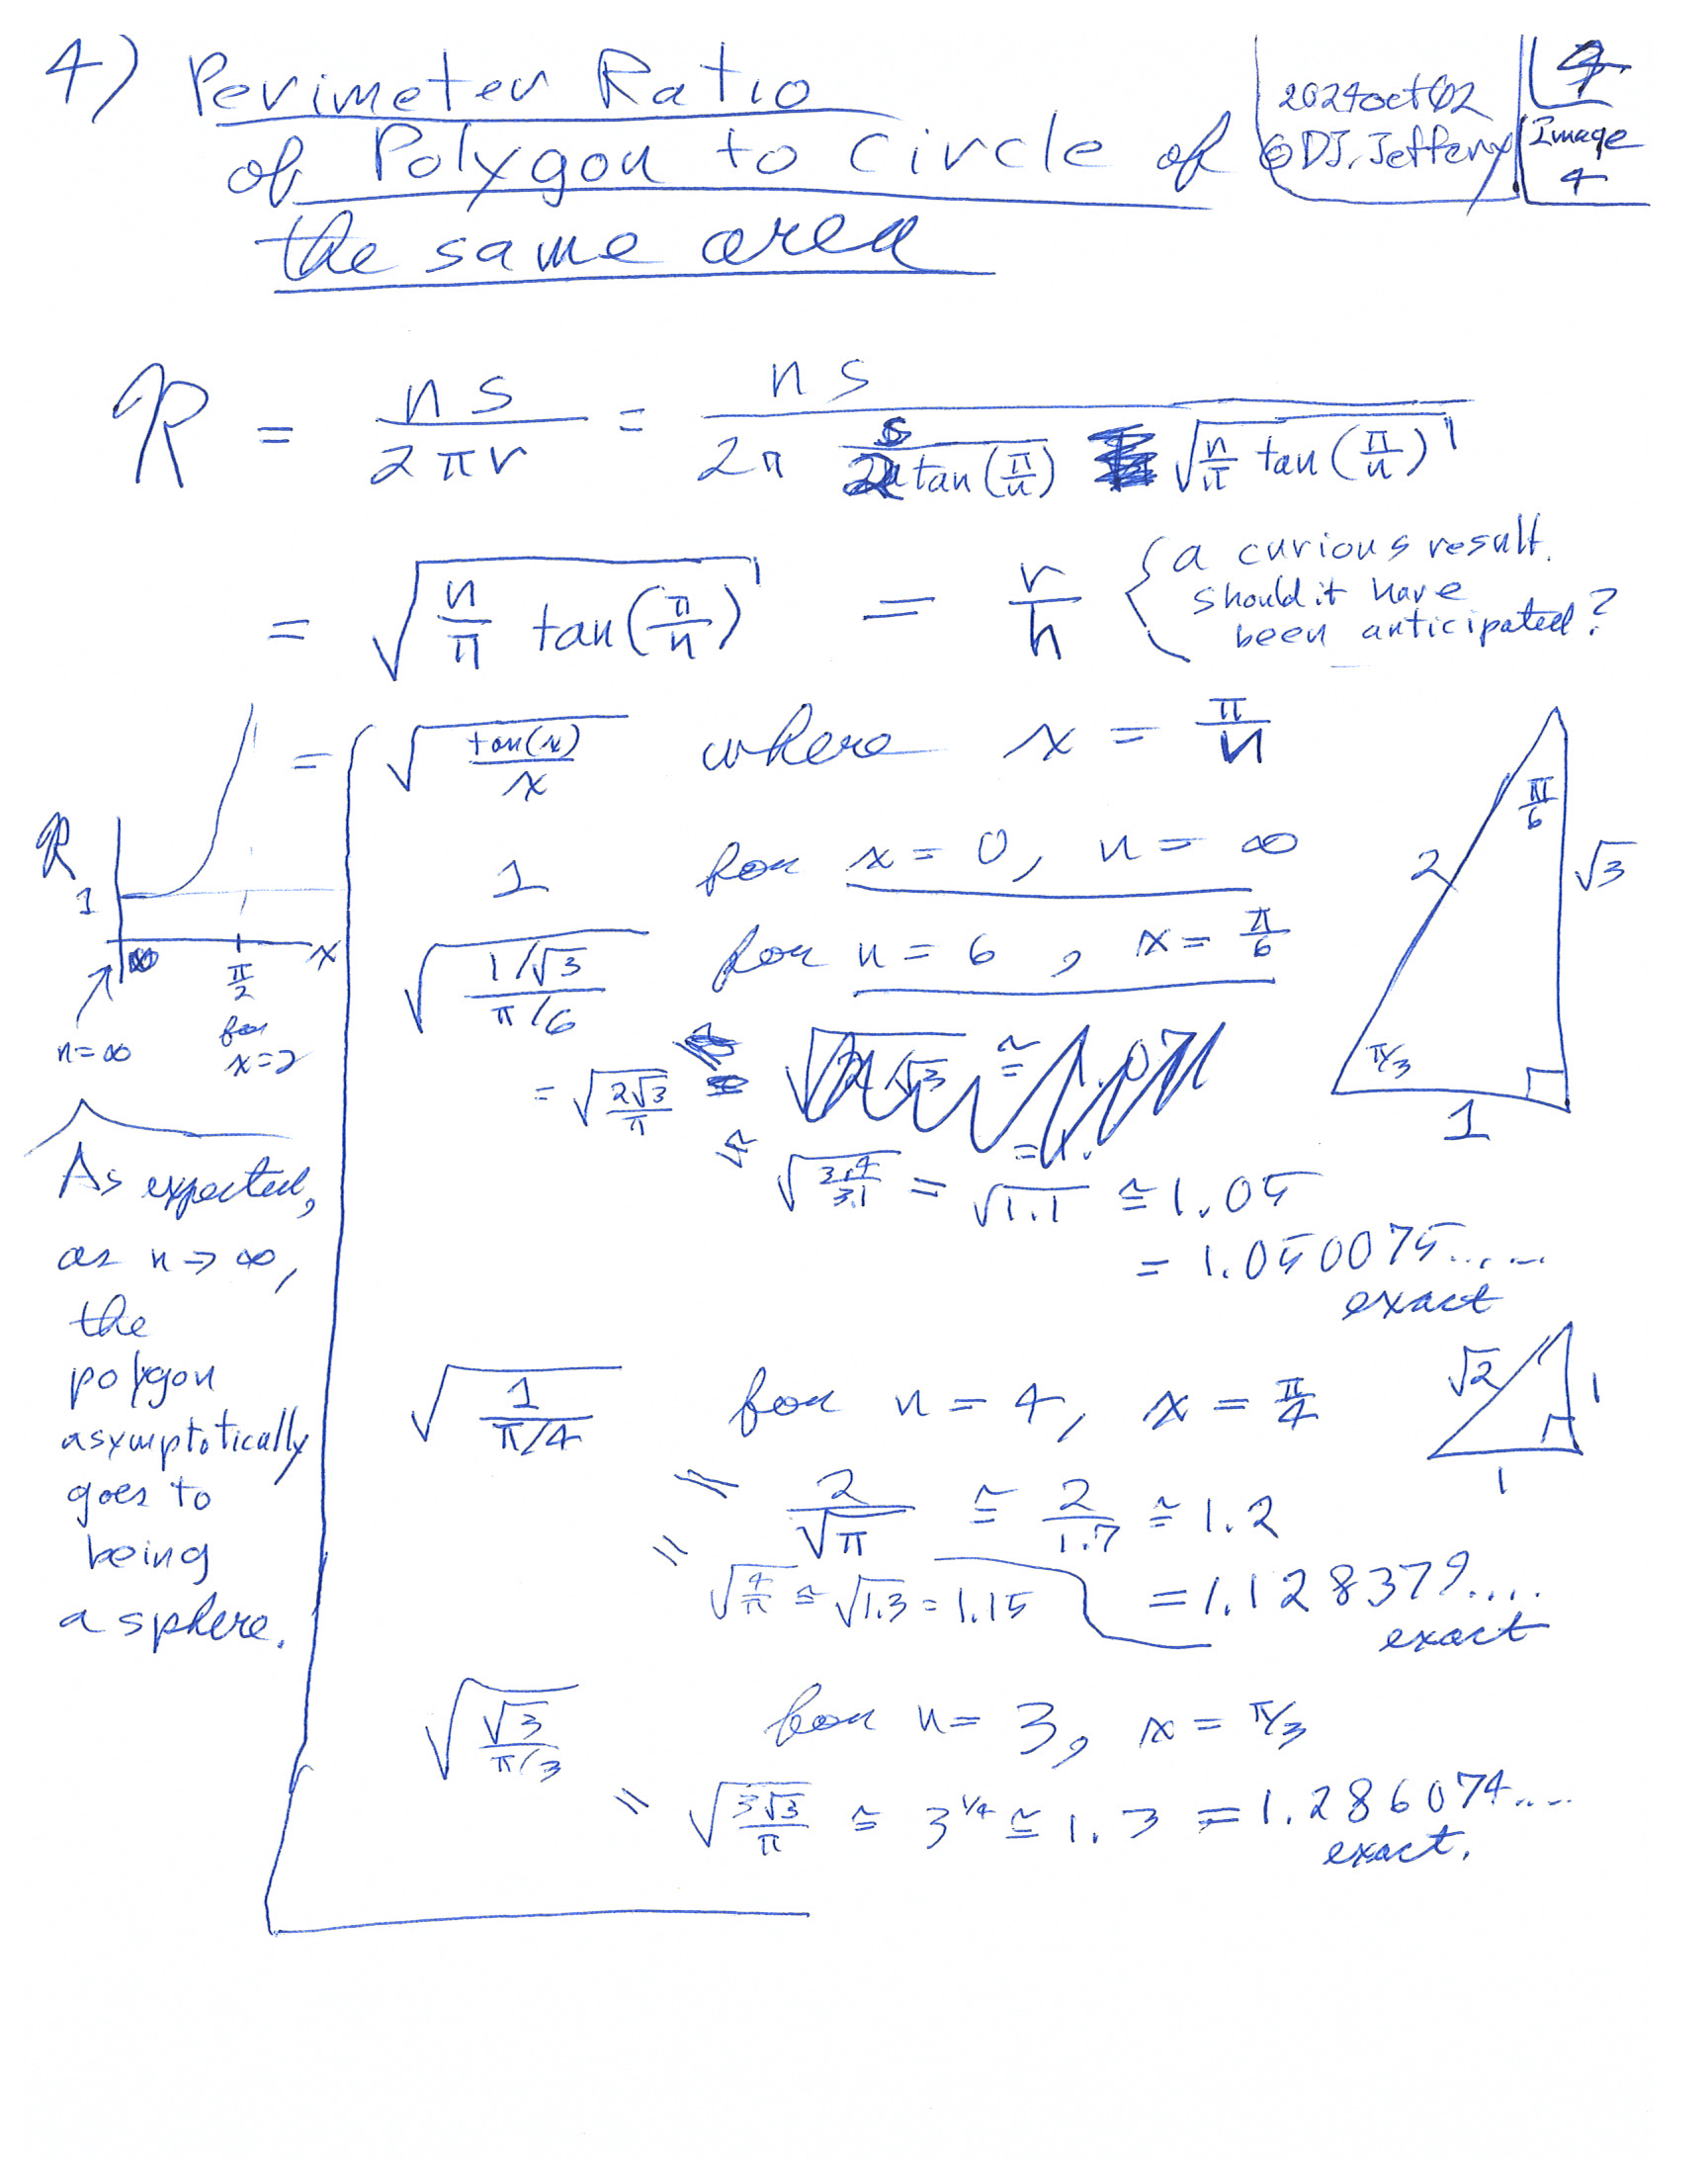 4) Perimeter Ratio
of Polygon to circle of
the same area
2024oct02
©DJ. Jeffery
Image
4
R = ns / 2πr = ns / 2π s / 2 tan(π/n) √(n/π tan(π/n))
= √(n/π tan(π/n)) = r/h { a curious result.
should it have
been anticipated?
= √(tan(x)/x) where x = π/n
1 for x = 0, n = ∞
√((1/√3)/(π/6)) for n = 6, x = π/6
= √(2√3/π)
≅ √(3.4/3.1) = √1.1 ≅ 1.05
= 1.050075.....
exact
√(1/(π/4)) for n = 4, x = π/4
= 2/√π ≅ 2/1.7 ≅ 1.2
= √(4/π) ≅ √1.3 = 1.15 = 1.128379....
exact
√(√3/(π/3)) for n = 3, x = π/3
= √(3√3/π) ≅ 3^1/4 ≅ 1.3 = 1.286074....
exact.
R
1
x
π/2
n=∞
for
x=2
As expected,
as n→∞,
the
polygon
asymptotically
goes to
being
a sphere.
π/6
2
√3
π/3
1
√2
1
1